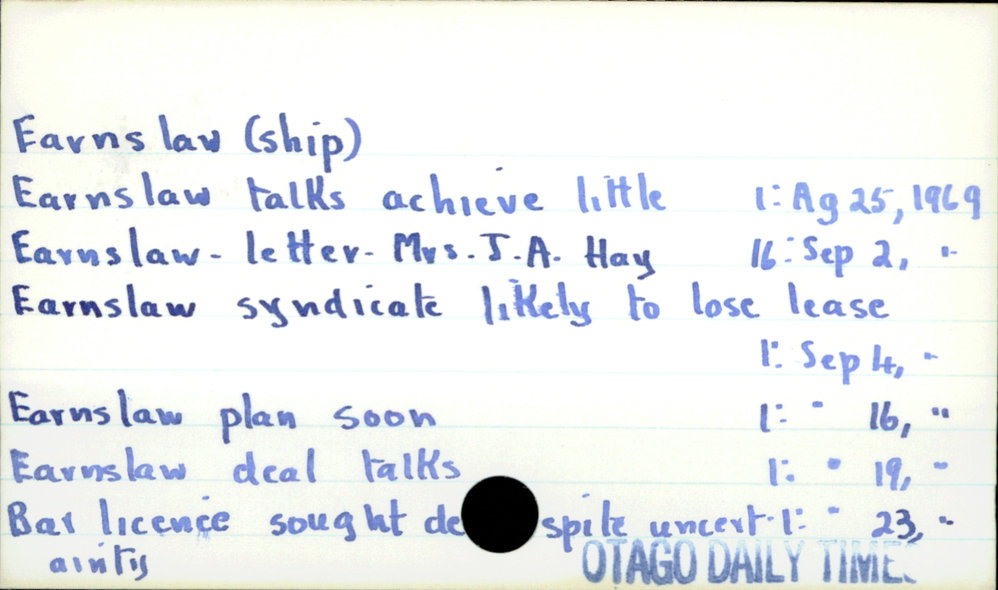 Earnslaw (ship)
Earnslaw talks achieve little 1: Ag 25, 1969
Earnslaw - letter - Mrs. J. A. Hay 16: Sep 2, "
Earnslaw syndicate likely to lose lease
1: Sep 4, "
Earnslaw plan soon 1: " 16, "
Earnslaw deal talks 1: " 19, "
Bar licence sought despite uncert- 1: " 23, "
ainty
OTAGO DAILY TIMES